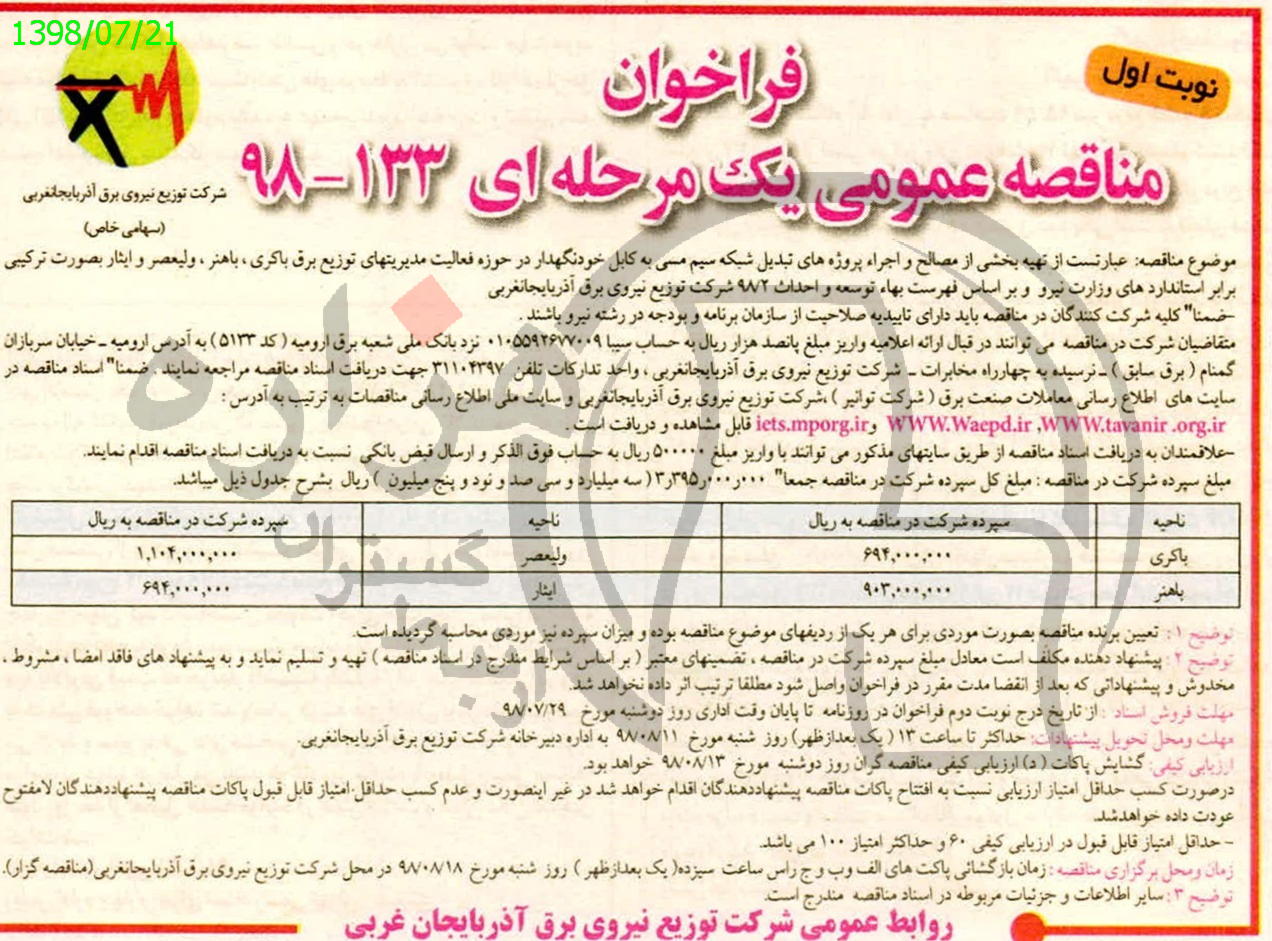 1398/07/21
نوبت اول
فراخوان
مناقصه عمومی یک مرحله ای ۱۳۳-۹۸
شرکت توزیع نیروی برق آذربایجانغربی
(سهامی خاص)
موضوع مناقصه: عبارتست از تهیه بخشی از مصالح و اجراء پروژه های تبدیل شبکه سیم مسی به کابل خودنگهدار در حوزه فعالیت مدیریتهای توزیع برق باکری ، باهنر ، ولیعصر و ایثار بصورت ترکیبی
برابر استاندارد های وزارت نیرو و بر اساس فهرست بهاء توسعه و احداث ۹۸/۲ شرکت توزیع نیروی برق آذربایجانغربی
-ضمنا" کلیه شرکت کنندگان در مناقصه باید دارای تاییدیه صلاحیت از سازمان برنامه و بودجه در رشته نیرو باشند .
متقاضیان شرکت در مناقصه می توانند در قبال ارائه اعلامیه واریز مبلغ پانصد هزار ریال به حساب سیبا ۰۱۰۵۵۹۲۶۷۷۰۰۹ نزد بانک ملی شعبه برق ارومیه ( کد ۵۱۳۳ ) به آدرس ارومیه - خیابان سربازان
گمنام ( برق سابق ) - نرسیده به چهارراه مخابرات - شرکت توزیع نیروی برق آذربایجانغربی ، واحد تدارکات تلفن ۳۱۱۰۴۳۹۷ جهت دریافت اسناد مناقصه مراجعه نمایند . ضمنا" اسناد مناقصه در
سایت های اطلاع رسانی معاملات صنعت برق ( شرکت توانیر ) ،شرکت توزیع نیروی برق آذربایجانغربی و سایت ملی اطلاع رسانی مناقصات به ترتیب به آدرس :
WWW.tavanir .org.ir، WWW.Waepd.ir و iets.mporg.ir قابل مشاهده و دریافت است .
-علاقمندان به دریافت اسناد مناقصه از طریق سایتهای مذکور می توانند با واریز مبلغ ۵۰۰۰۰۰ ریال به حساب فوق الذکر و ارسال قبض بانکی نسبت به دریافت اسناد مناقصه اقدام نمایند.
مبلغ سپرده شرکت در مناقصه : مبلغ کل سپرده شرکت در مناقصه جمعا" ۳٫۳۹۵٫۰۰۰٫۰۰۰ ( سه میلیارد و سی صد و نود و پنج میلیون ) ریال بشرح جدول ذیل میباشد.
ناحیه سپرده شرکت در مناقصه به ریال ناحیه سپرده شرکت در مناقصه به ریال
باکری ۶۹۴,۰۰۰,۰۰۰ ولیعصر ۱,۱۰۴,۰۰۰,۰۰۰
باهنر ۹۰۳,۰۰۰,۰۰۰ ایثار ۶۹۴,۰۰۰,۰۰۰
توضیح ۱: تعیین برنده مناقصه بصورت موردی برای هر یک از ردیفهای موضوع مناقصه بوده و میزان سپرده نیز موردی محاسبه گردیده است.
توضیح ۲: پیشنهاد دهنده مکلف است معادل مبلغ سپرده شرکت در مناقصه ، تضمینهای معتبر ( بر اساس شرایط مندرج در اسناد مناقصه ) تهیه و تسلیم نماید و به پیشنهاد های فاقد امضا ، مشروط ،
مخدوش و پیشنهاداتی که بعد از انقضا مدت مقرر در فراخوان واصل شود مطلقا ترتیب اثر داده نخواهد شد.
مهلت فروش اسناد : از تاریخ درج نوبت دوم فراخوان در روزنامه تا پایان وقت اداری روز دوشنبه مورخ ۹۸/۰۷/۲۹
مهلت ومحل تحویل پیشنهادات: حداکثر تا ساعت ۱۳ ( یک بعدازظهر) روز شنبه مورخ ۹۸/۰۸/۱۱ به اداره دبیرخانه شرکت توزیع برق آذربایجانغربی.
ارزیابی کیفی: گشایش پاکات ( د) ارزیابی کیفی مناقصه گران روز دوشنبه مورخ ۹۸/۰۸/۱۳ خواهد بود.
درصورت کسب حداقل امتیاز ارزیابی نسبت به افتتاح پاکات مناقصه پیشنهاددهندگان اقدام خواهد شد در غیر اینصورت و عدم کسب حداقل امتیاز قابل قبول پاکات مناقصه پیشنهاددهندگان لامفتوح
عودت داده خواهدشد.
- حداقل امتیاز قابل قبول در ارزیابی کیفی ۶۰ و حداکثر امتیاز ۱۰۰ می باشد.
زمان ومحل برگزاری مناقصه : زمان بازگشائی پاکت های الف وب و ج راس ساعت سیزده( یک بعدازظهر ) روز شنبه مورخ ۹۸/۰۸/۱۸ در محل شرکت توزیع نیروی برق آذربایجانغربی(مناقصه گزار).
توضیح ۳: سایر اطلاعات و جزئیات مربوطه در اسناد مناقصه مندرج است.
روابط عمومی شرکت توزیع نیروی برق آذربایجان غربی